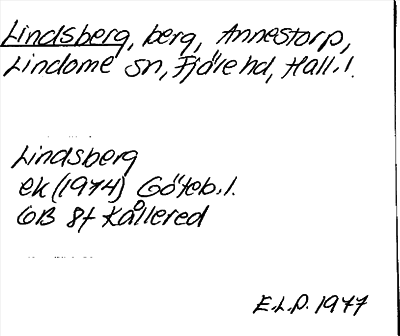 Lindsberg, berg, Annestorp,
Lindome sn, Fjäre hd, Hall.l.
Lindsberg
ek (1974) Göteb.l.
6B 8f Kållered
E.L.P. 1977